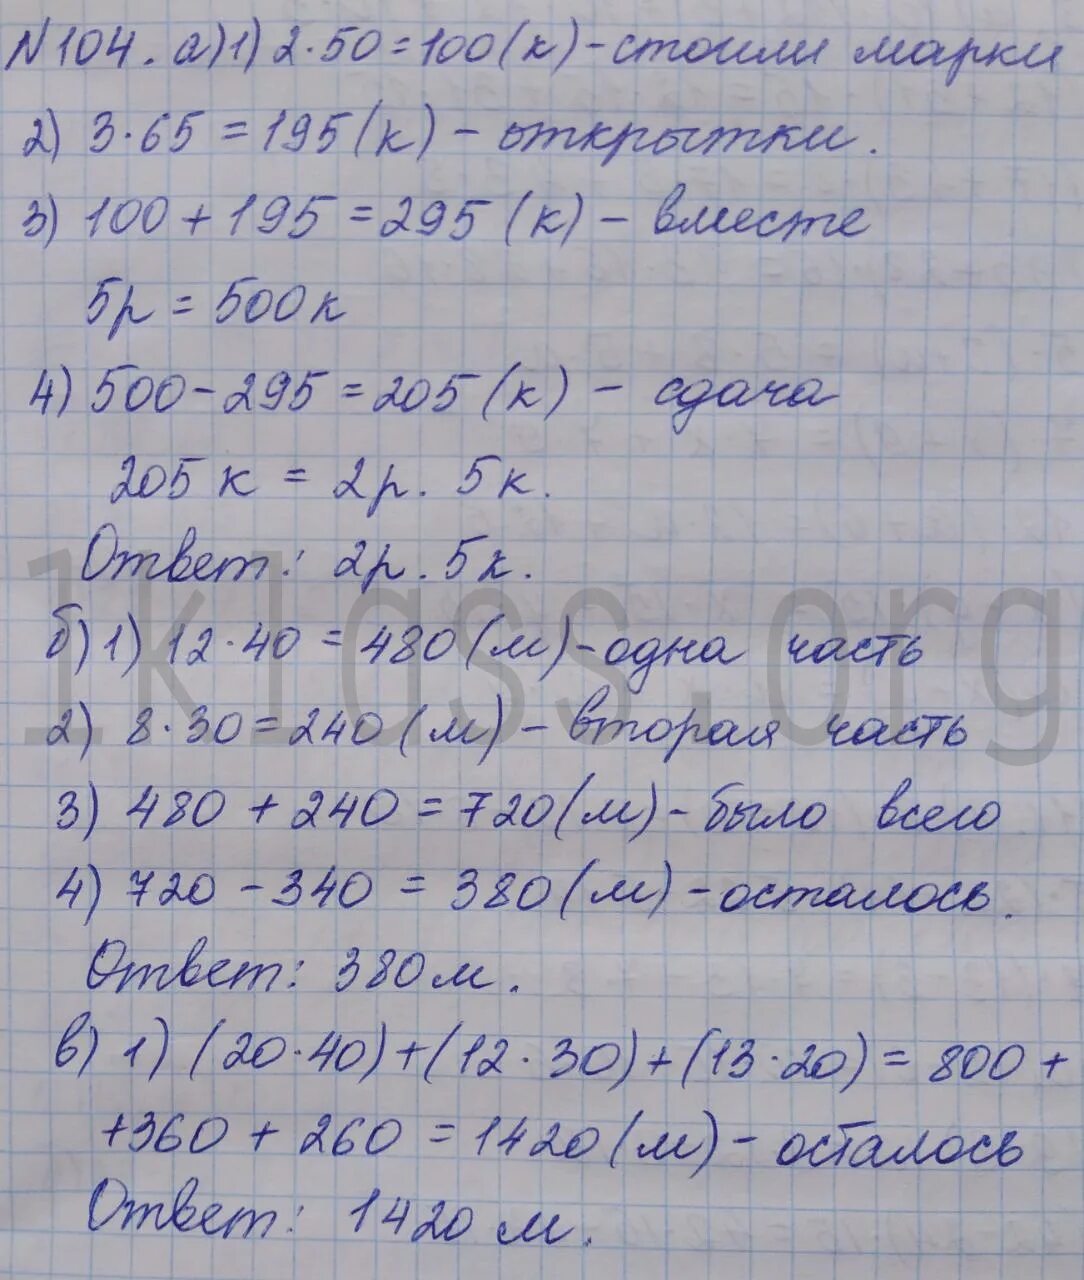 №104. а) 1) 2·50=100(к)-стоили марки
2) 3·65=195(к) - открытки.
3) 100+195=295(к) - вместе
5р = 500к
4) 500-295=205(к) - сдача
205 к = 2р. 5к.
Ответ: 2р. 5к.
1klass.org
б) 1) 12·40=480(м)-одна часть
2) 8·30=240(м)-вторая часть
3) 480+240=720(м)-было всего
4) 720-340=380(м)-осталось.
Ответ: 380м.
в) 1) (20·40)+(12·30)+(13·20)=800+
+360+260=1420(м)-осталось
Ответ: 1420 м.